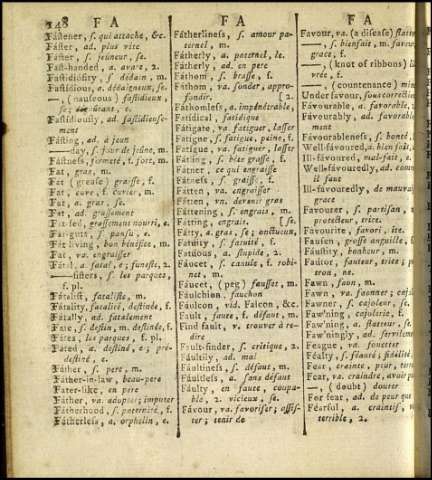 248 F A
F A
F A
Fástener, s. qui attache, &c.
Fáster, ad. plus vite
Fáster, s. jeûneur, se.
Fast-handed, a. avare, 2.
Fastidiósity, s. dédain, m.
Fastídious, a. dédaigneux, se.
—, (nauseous) fastidieux,
se;
Fastídiously, ad. fastidieuse-
ment
Fásting, ad. à jeun
—day, s. jour de jeûne, m.
Fástness, fermeté, f. fort, m.
Fat, gras, m.
Fat (grease) graisse, f.
Fat, cuve, f. cuvier, m.
Fat, a. gras, se.
Fat, ad. grassement
Fat-fed, grassement nourri, e.
Fat-guts, s. pansu, e.
Fat living, bon bénéfice, m.
Fat, va. engraisser
Fátal, a. fatal, e; funeste, 2.
—sisters, s. les parques,
f. pl.
Fátalist, fataliste, m.
Fátality, fatalité, destinée, f.
Fátally, ad. fatalement
Fate, s. destin, m. destinée, f.
Fates, les parques, f. pl.
Fated, a. destiné, e; pré-
destiné, e
Fáther, s. pere, m.
Fáther-in-law, beau-pere
Fater-like, en pere
Fáther, va. adopter; imputer
Fátherhood, s. paternité, f.
Fátherless, a. orphelin, e.
Fátherliness, s. amour pa-
ternel, m.
Fátherly, a. paternel, le.
Fátherly, ad. en pere
Fáthom, s. brasse, f.
Fáthom, va. sonder, appro-
fondir. [2.
Fáthomless, a. impénétrable,
Fatídical, fatidique
Fátigate, va. fatiguer, lasser
Fatígue, s. fatigue, peine, f.
Fatígue, va. fatiguer, lasser
Fátling, s. bête grasse, f.
Fátner, ce qui engraisse
Fátness, s. graisse, f.
Fátten, va. engraisser
Fátten, vn. devenir gras
Fáttening, s. engrais, m.
Fátting, engrais. [se.
Fátty, a. gras, se; onctueux,
Fatúity, s. fatuité, f.
Fátuous, a. stupide, 2.
Fáucet, s. canule, f. robi-
net, m.
Fáucet, (peg) fausset, m.
Fáulchion, fauchon
Fáulcon, vid. Falcon, &c.
Fault, faute, f. défaut, m.
Find fault, v. trouver à re-
dire
Fault-finder, s. critique, 2.
Fáultily, ad. mal
Fáultiness, s. défaut, m.
Fáultless, a. sans défaut
Fáulty, en faute, coupa-
ble, 2. vicieux, se.
Fávour, va. favoriser; assis-
ter; tenir de
Favour, va. (a disease) flatter
—, s. bienfait, m. faveur
grace, f.
—, (knot of ribbons) li-
vrée, f.
—, (countenance) mine
Under favour, sous correction
Fávourable, a. favorable,
Fávourably, ad. favorable-
ment
Fávourableness, s. bonté,
Well-fávoured, a. bien fait,
Ill-fávoured, mal-fait, e.
Well-fávouredly, ad. comme
il faut
Ill-favouredly, de mauvaise
grace
Favourer, s. partisan,
protecteur, trice.
Fávourite, favori, ite.
Fausen, grosse anguille,
Fáusity, bonheur, m.
Fautor, fauteur, trice; pa-
tron, ne.
Fawn, faon, m.
Fawn, va. faonner; cajo
Fawner, s. cajoleur, se.
Fáw'ning, cajolerie, f.
Faw'ning, a. flatteur, se.
Faw'ningly, ad. servilement
Feague, va. fouetter
Féalty, s. féauté, fidélité,
Fear, crainte, peur, terr
Fear, va. craindre, avoir p
—, (doubt) douter
For fear, ad. de peur que
Féarful, a. craintif,
terrible, 2.